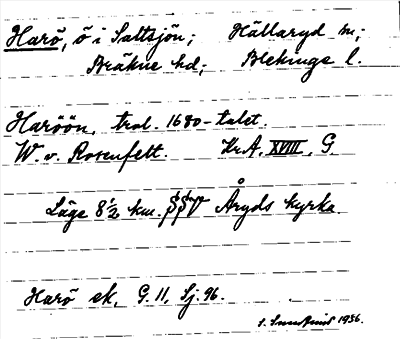 Harö, ö i Saltsjön; Hällaryd sn;
Bräkne hd; Blekinge l.
Haröön, trol. 1680-talet.
W. v. Rosenfelt. Kr.A. XVIII, G
Läge 8½ km. SSV Åryds kyrka.
Harö ek, G. 11, Sj. 96.
1936.